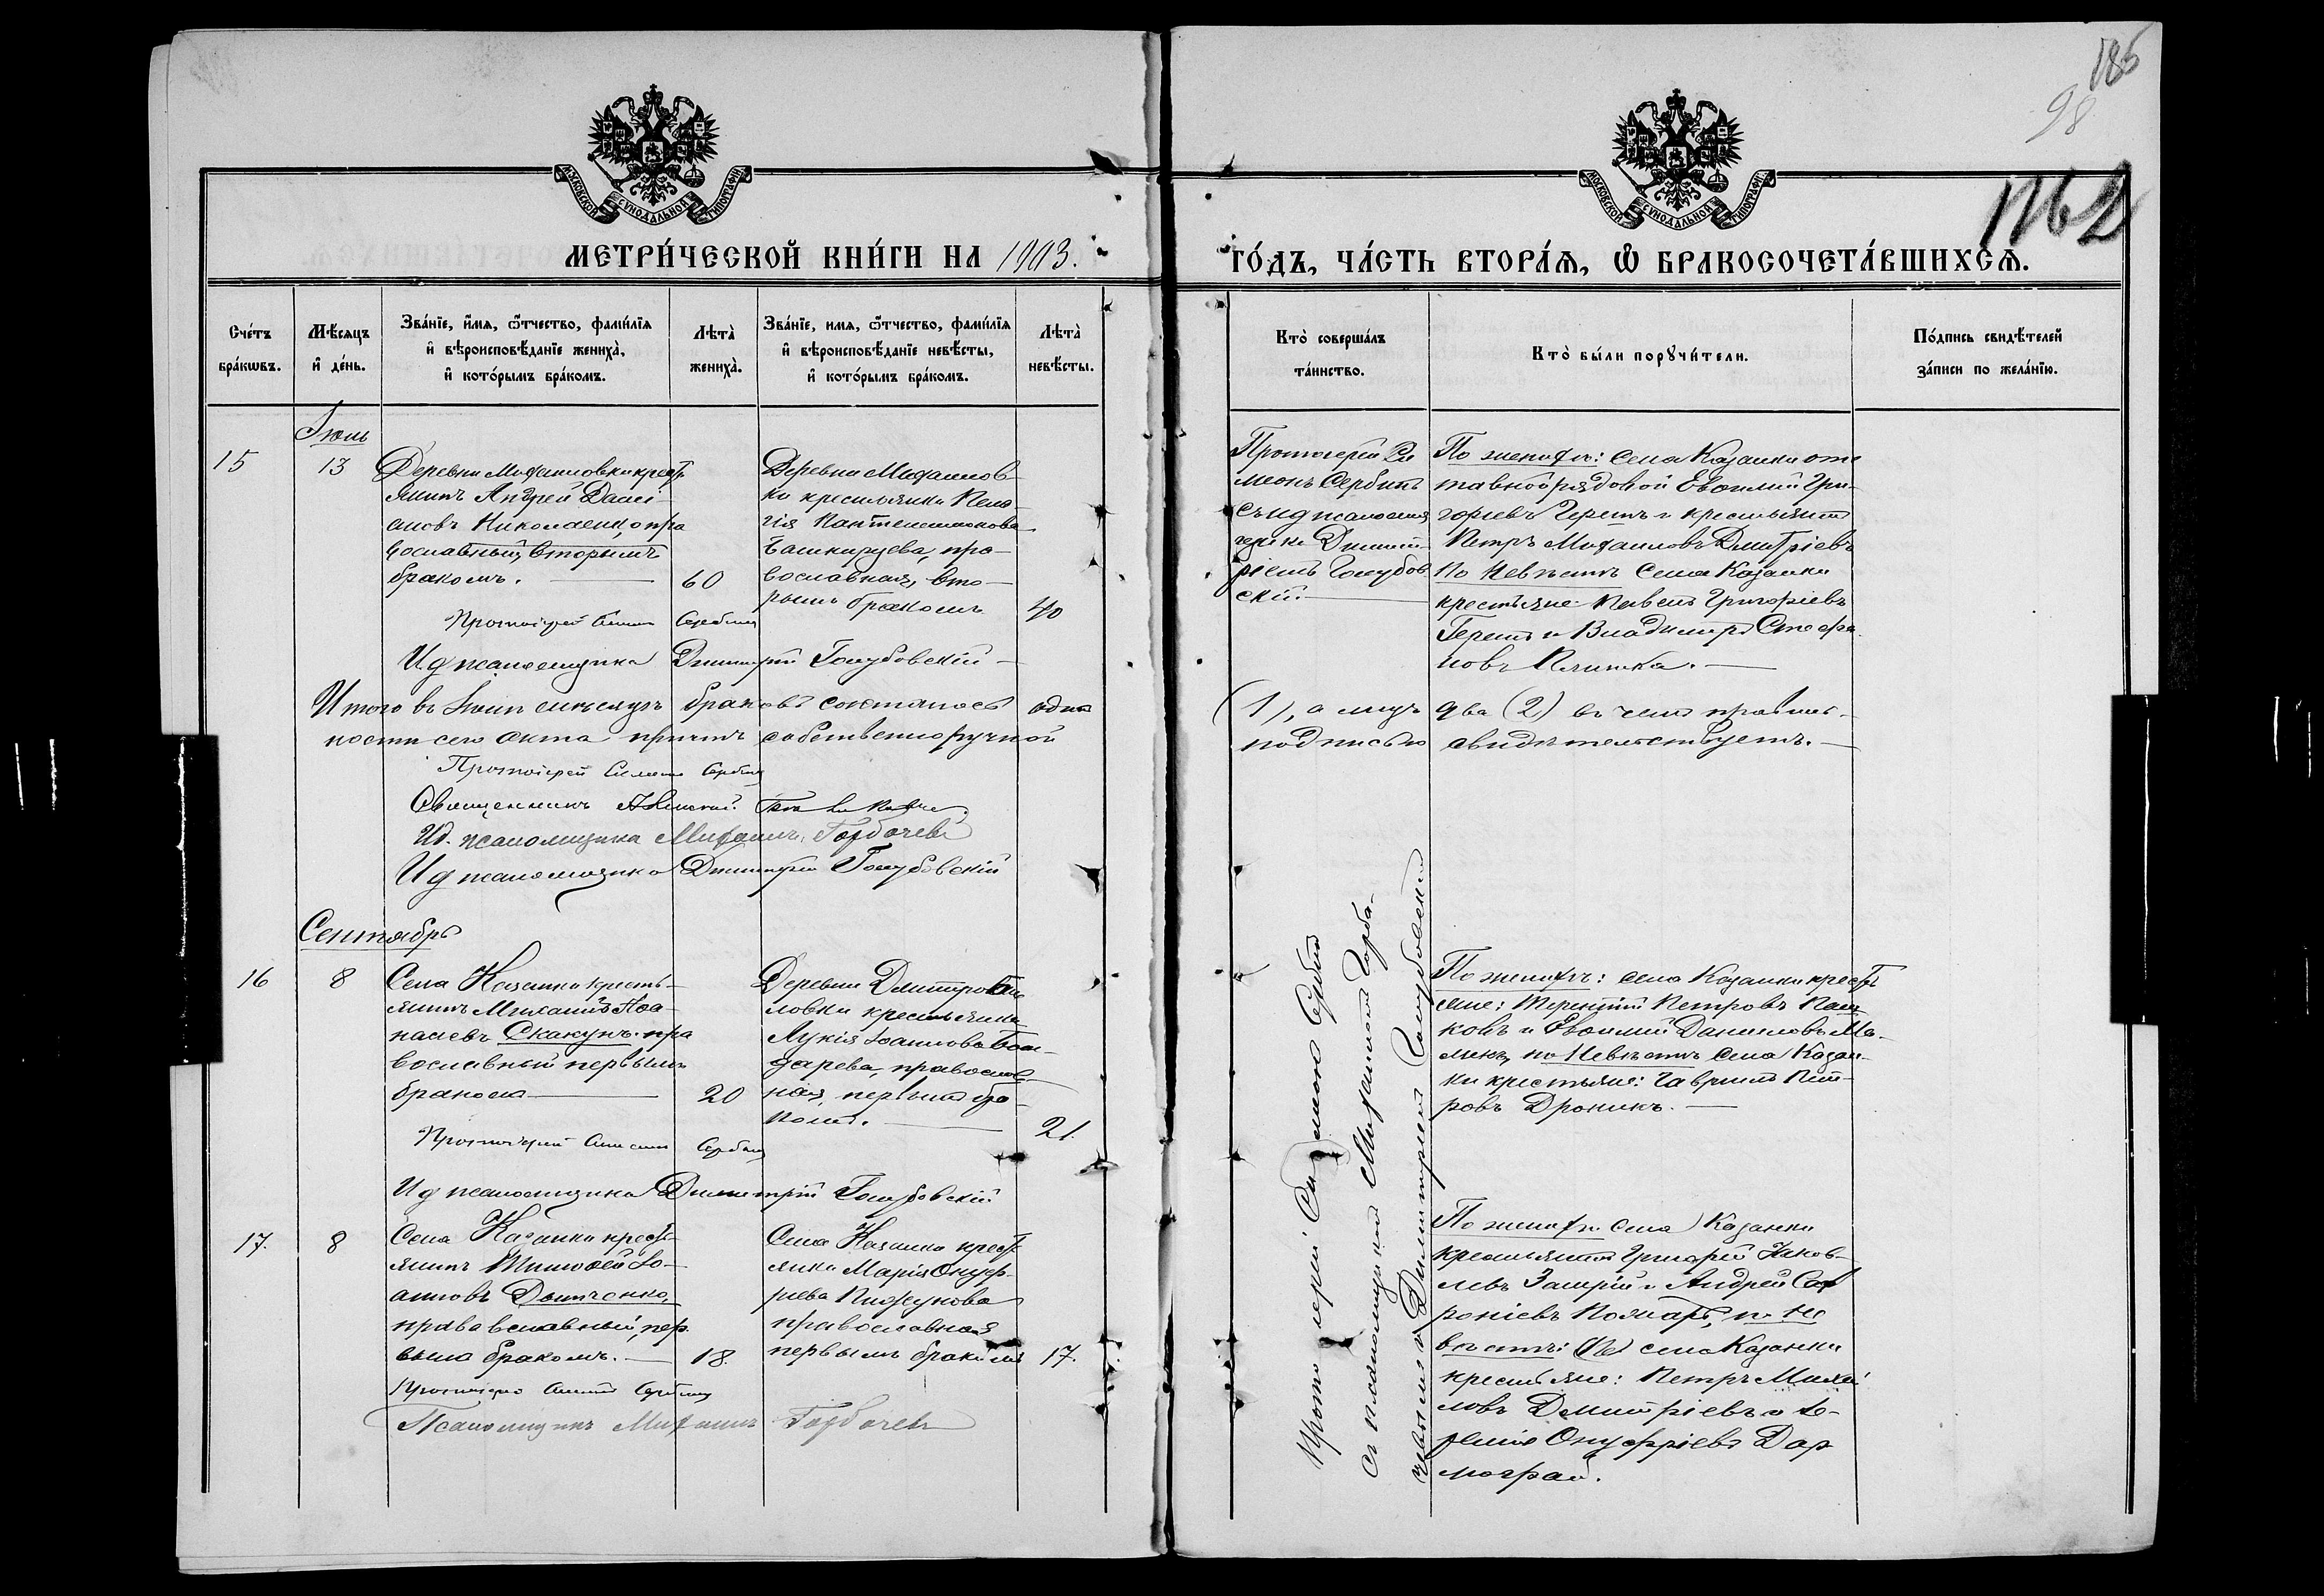 186
98
МОСКОВСКОЙ СУНОДАЛЬНОЙ ТИПОГРАФІИ
МОСКОВСКОЙ СУНОДАЛЬНОЙ ТИПОГРАФІИ
МЕТРИ́ЧЕСКОЙ КНИ́ГИ НА 1903.
ГО́ДЪ, ЧА́СТЬ ВТОРА́Ѧ, Ѽ БРАКОСОЧЕТА́ВШИХСѦ.
Сче́тъ
бра́кѡвъ.
Мѣ́сяцъ
и҆ де́нь.
Зва́нїе, и҆́мя, ѻ҆́тчество, фами́лїя
и҆ вѣроисповѣ́данїе жениха̀,
и҆ кото́рымъ бра́комъ.
Лѣта̀
жениха̀.
Зва́нїе, имя, ѻ҆́тчество, фами́лїя
и҆ вѣроисповѣ́данїе невѣ́сты,
и҆ кото́рымъ бра́комъ.
Лѣта̀
невѣ́сты.
Кто̀ соверша́лъ
та́инство.
Кто̀ бы́ли порꙋчи́тели.
По́дпись свидѣ́телей
за́писи по жела́нїю.
Іюль
15
13
Деревни Михаиловки кресть
янинъ Андрей Дамі-
ановъ Николаенко, пра
вославный, вторымъ
бракомъ.
60
Деревни Михаилов-
ки крестьянка Пела-
гія Пантелеимонова
Башкирцева, пра-
вославная, вто-
рымъ бракомъ
40
Протоіерей Си
меонъ Сербинъ
съ ид псаломщ
щика Димит-
ріемъ Голубов
скій.
По женихѣ: села Казанки отс
тавной рядовой Евфимій Гри-
горіевъ Герегъ и крестьянинъ
Петръ Михаиловъ Дмитріевъ
по невѣстѣ села Казанки
крестьяне Павелъ Григоріевъ
Герегъ и Владиміръ Стефа
новъ
Протоіерей Симеонъ Сербинъ
И д псаломщика Димитрій Голубовскій
Итого въ Іюлѣ мѣсяцѣ браковъ состоялось одинъ
(1), а лицъ два (2) въ чемъ правиль-
ности сего акта причтъ собственноручной
подписью свидѣтельствуетъ.
Протоіерей Симеонъ Сербинъ
Священникъ
Ид. псаломщика Михаилъ Горбачевъ
И д псаломщика Димитрій Голубовскій
Сентябрь
16
8
Села Казанки кресть-
янинъ Михаилъ Афа-
насіевъ Скакунъ пра
вославный первымъ
бракомъ
20
Деревни Дмитро
ловки крестьянка
Лукія Іоаннова Бон-
дарева, православ
ная, первымъ бра-
комъ.
21.
По женихѣ: села Казанки кресть
яне: Терентій Петровъ
ковъ и Евфимій Даниловъ Ма-
ликъ, по невѣстѣ села Казан-
ки крестьяне: Гавріилъ Пет-
ровъ Дроникъ.
Протоіерей Симеонъ Сербинъ
И д псаломщика Димитрій Голубовскій
17.
8
Села Казанки кресть-
янинъ Тимофей Іо-
анновъ Дотченко,
православный, пер
вымъ бракомъ.
18.
Села Казанки кресть
янка Марія Онуф-
ріева
православная
первымъ бракомъ
17.
По женихѣ села Казанки
крестьянинъ Григорій Яков-
левъ и Андрей Соф
роніевъ по не
вѣстѣ: села Казанки
крестьяне: Петръ Михаи
ловъ Дмитріевъ и
Онуфріевъ Дар
мограй.
Протоіерей Симеонъ Сербинъ
Псаломщикъ Михаилъ Горбачевъ
Протоіерей Симеонъ Сербинъ
съ псаломщикомъ Михаиломъ Горба-
чевымъ и Димитріемъ Голубовскимъ